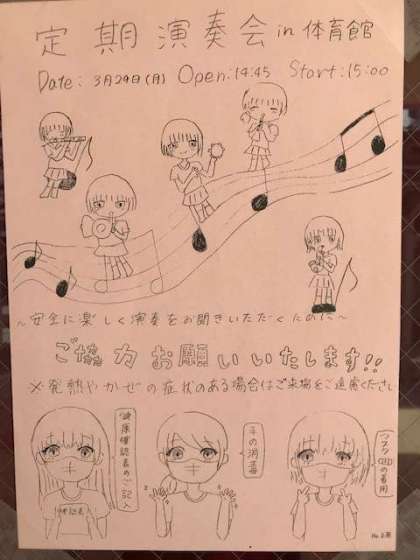 定期演奏会 in 体育館
Date: 3月29日(月) Open:14:45 Start:15:00
~安全に楽しく演奏をお聞きいただくために~
ご協力お願いいたします!!
※発熱やかぜの症状のある場合はご来場をご遠慮ください
健康確認表のご記入
手の消毒
マスクの着用
確認表